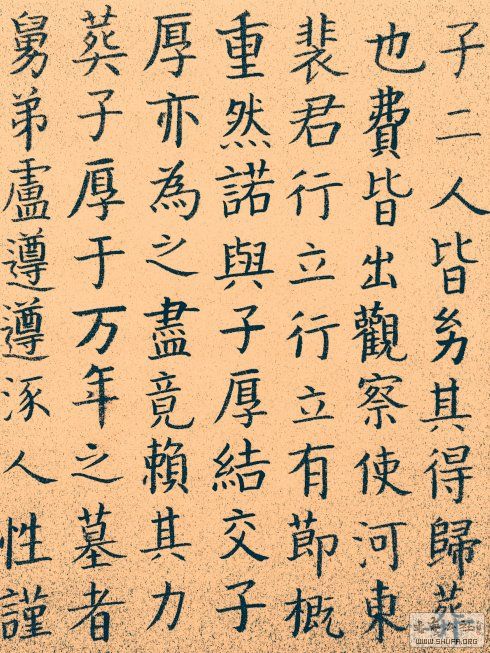 子二人皆幼其得歸葬
也費皆出觀察使河東
裴君行立行立有節概
重然諾與子厚結交子
厚亦為之盡竟賴其力
葬子厚于万年之墓者
舅弟盧遵遵涿人性謹
WWW.SHUFA.ORG